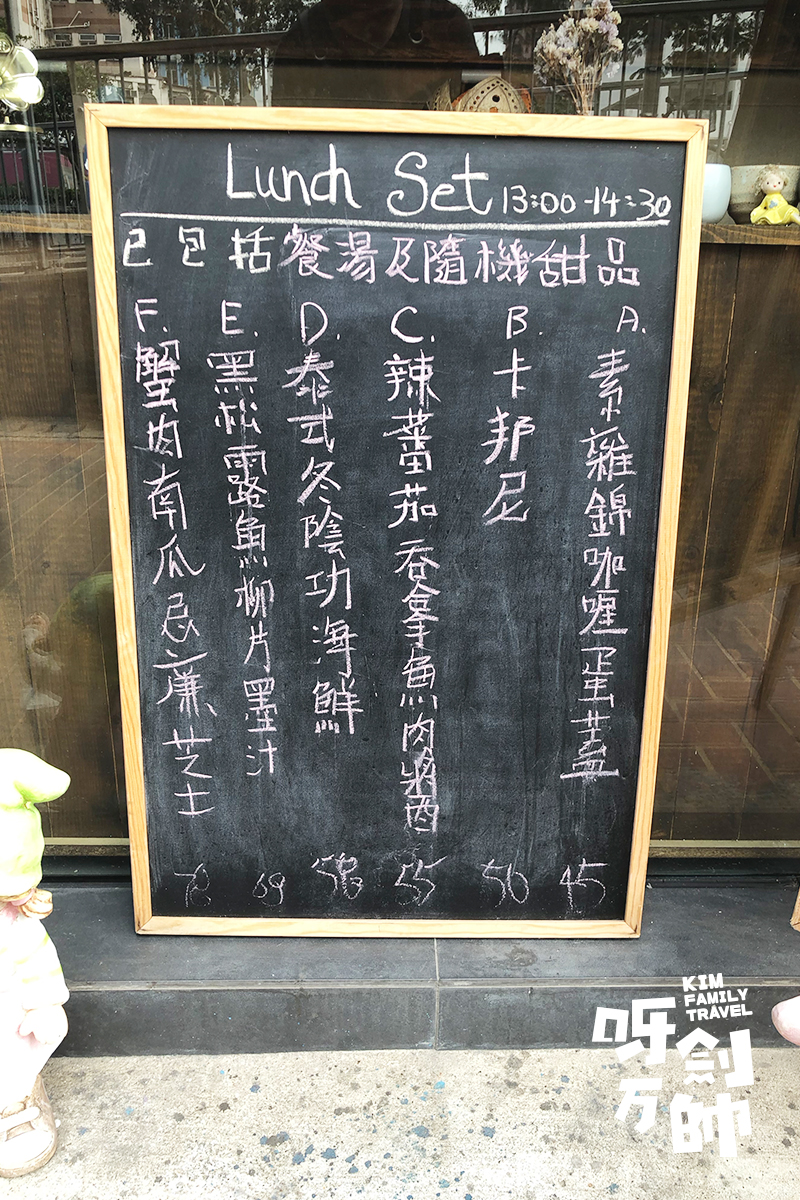 Lunch Set 13:00-14:30
已包括餐湯及隨機甜品
A. 素雜錦咖喱蛋蓋 45
B. 卡邦尼 50
C. 辣蕃茄吞拿魚肉將酉 55
D. 泰式冬陰功海鮮 58
E. 黑松露魚柳片墨汁 69
F. 蟹肉南瓜忌廉芝士 78
KIM
FAMILY
TRAVEL
呀劍
万帥